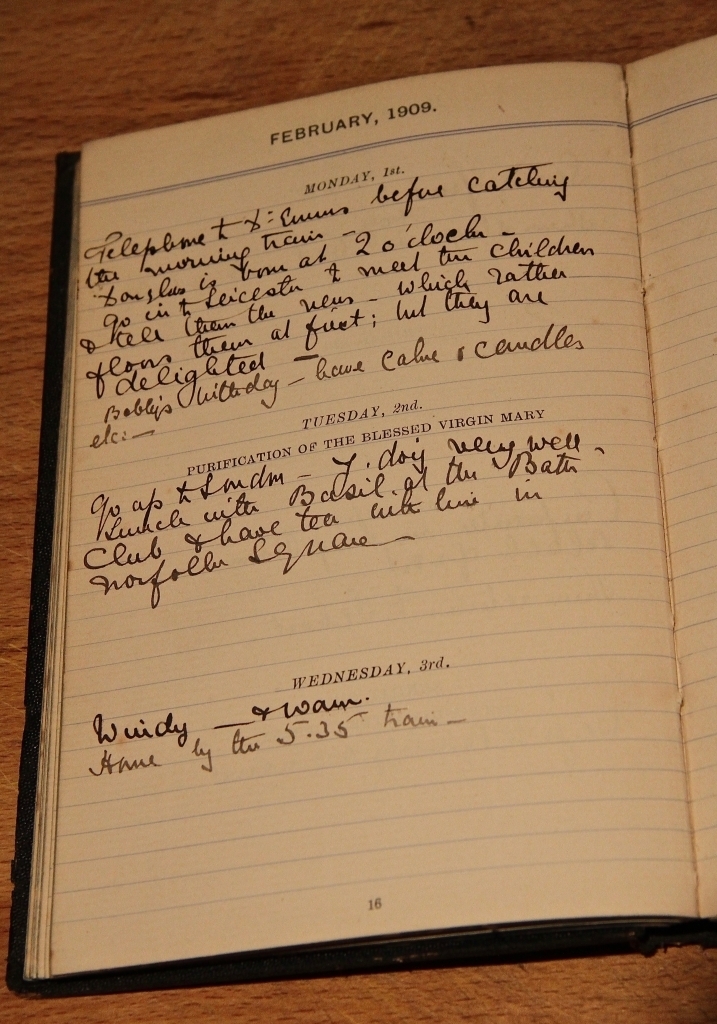 FEBRUARY, 1909.
MONDAY, 1st.
Telephone to before catching
the morning train -
Douglas is born at 2 o'clock -
go in to Leicester & meet the children
& tell them the news - which rather
floors them at first; but they are
delighted -
Bobby's birthday - have cake & candles
etc: -
TUESDAY, 2nd.
PURIFICATION OF THE BLESSED VIRGIN MARY
go up to London - Y. doing very well -
Lunch with Basil at the Bath
Club & have tea with him in
Norfolk Square -
WEDNESDAY, 3rd.
Windy - & warm.
Home by the 5.35 train -
16